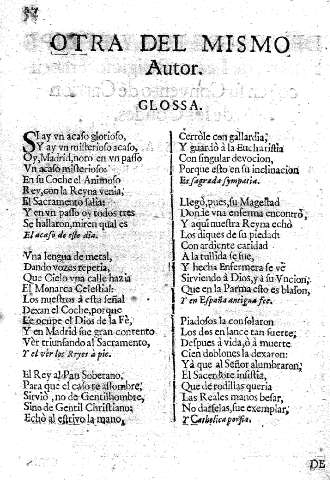 OTRA DEL MISMO
Autor.
GLOSSA.
SI ay vn acaso glorioso,
Y ay vn misterioso acaso,
Oy, Madrid, notò en vn passo
Vn acaso misterioso:
En su Coche el Animoso
Rey, con la Reyna venia,
El Sacramento salia:
Y en vn passo oy todos tres
Se hallaron, miren qual es
El acaso de este dia.
Vna lengua de metal,
Dando vozes repetia,
Que Cielo vna calle hazia
El Monarca Celestial:
Los nuestros à esta señal
Dexan el Coche, porque
Le ocupe el Dios de la Fè,
Y en Madrid fue gran contento
Vèr triunfando al Sacramento,
Y el vèr los Reyes à pie.
El Rey al Pan Soberano,
Para que el caso te assombre,
Sirviò, no de Gentilhombre,
Sino de Gentil Christiano:
Echò al estrivo la mano,
Cerròle con gallardia,
Y guardò à la Eucharistia
Con singular devocion,
Porque esto en su inclinacion
Es sagrada sympatia.
Llegò, pues, su Magestad
Donde vna enferma encontrò,
Y aqui nuestra Reyna echò
Los diques de su piedad:
Con ardiente caridad
A la tullida se fue,
Y hecha Enfermera se vè
Sirviendo à Dios, y à su Vncion;
Que en la Parma esto es blason,
Y en España antigua fee.
Piadosos la consolaron
Los dos en lance tan fuerte;
Despues à vida, ò à muerte
Cien doblones la dexaron:
Yà que al Señor alumbraron,
El Sacerdote insistia,
Que de rodillas queria
Las Reales manos besar,
No darselas, fue exemplar,
Y Catholica porfia.
DE